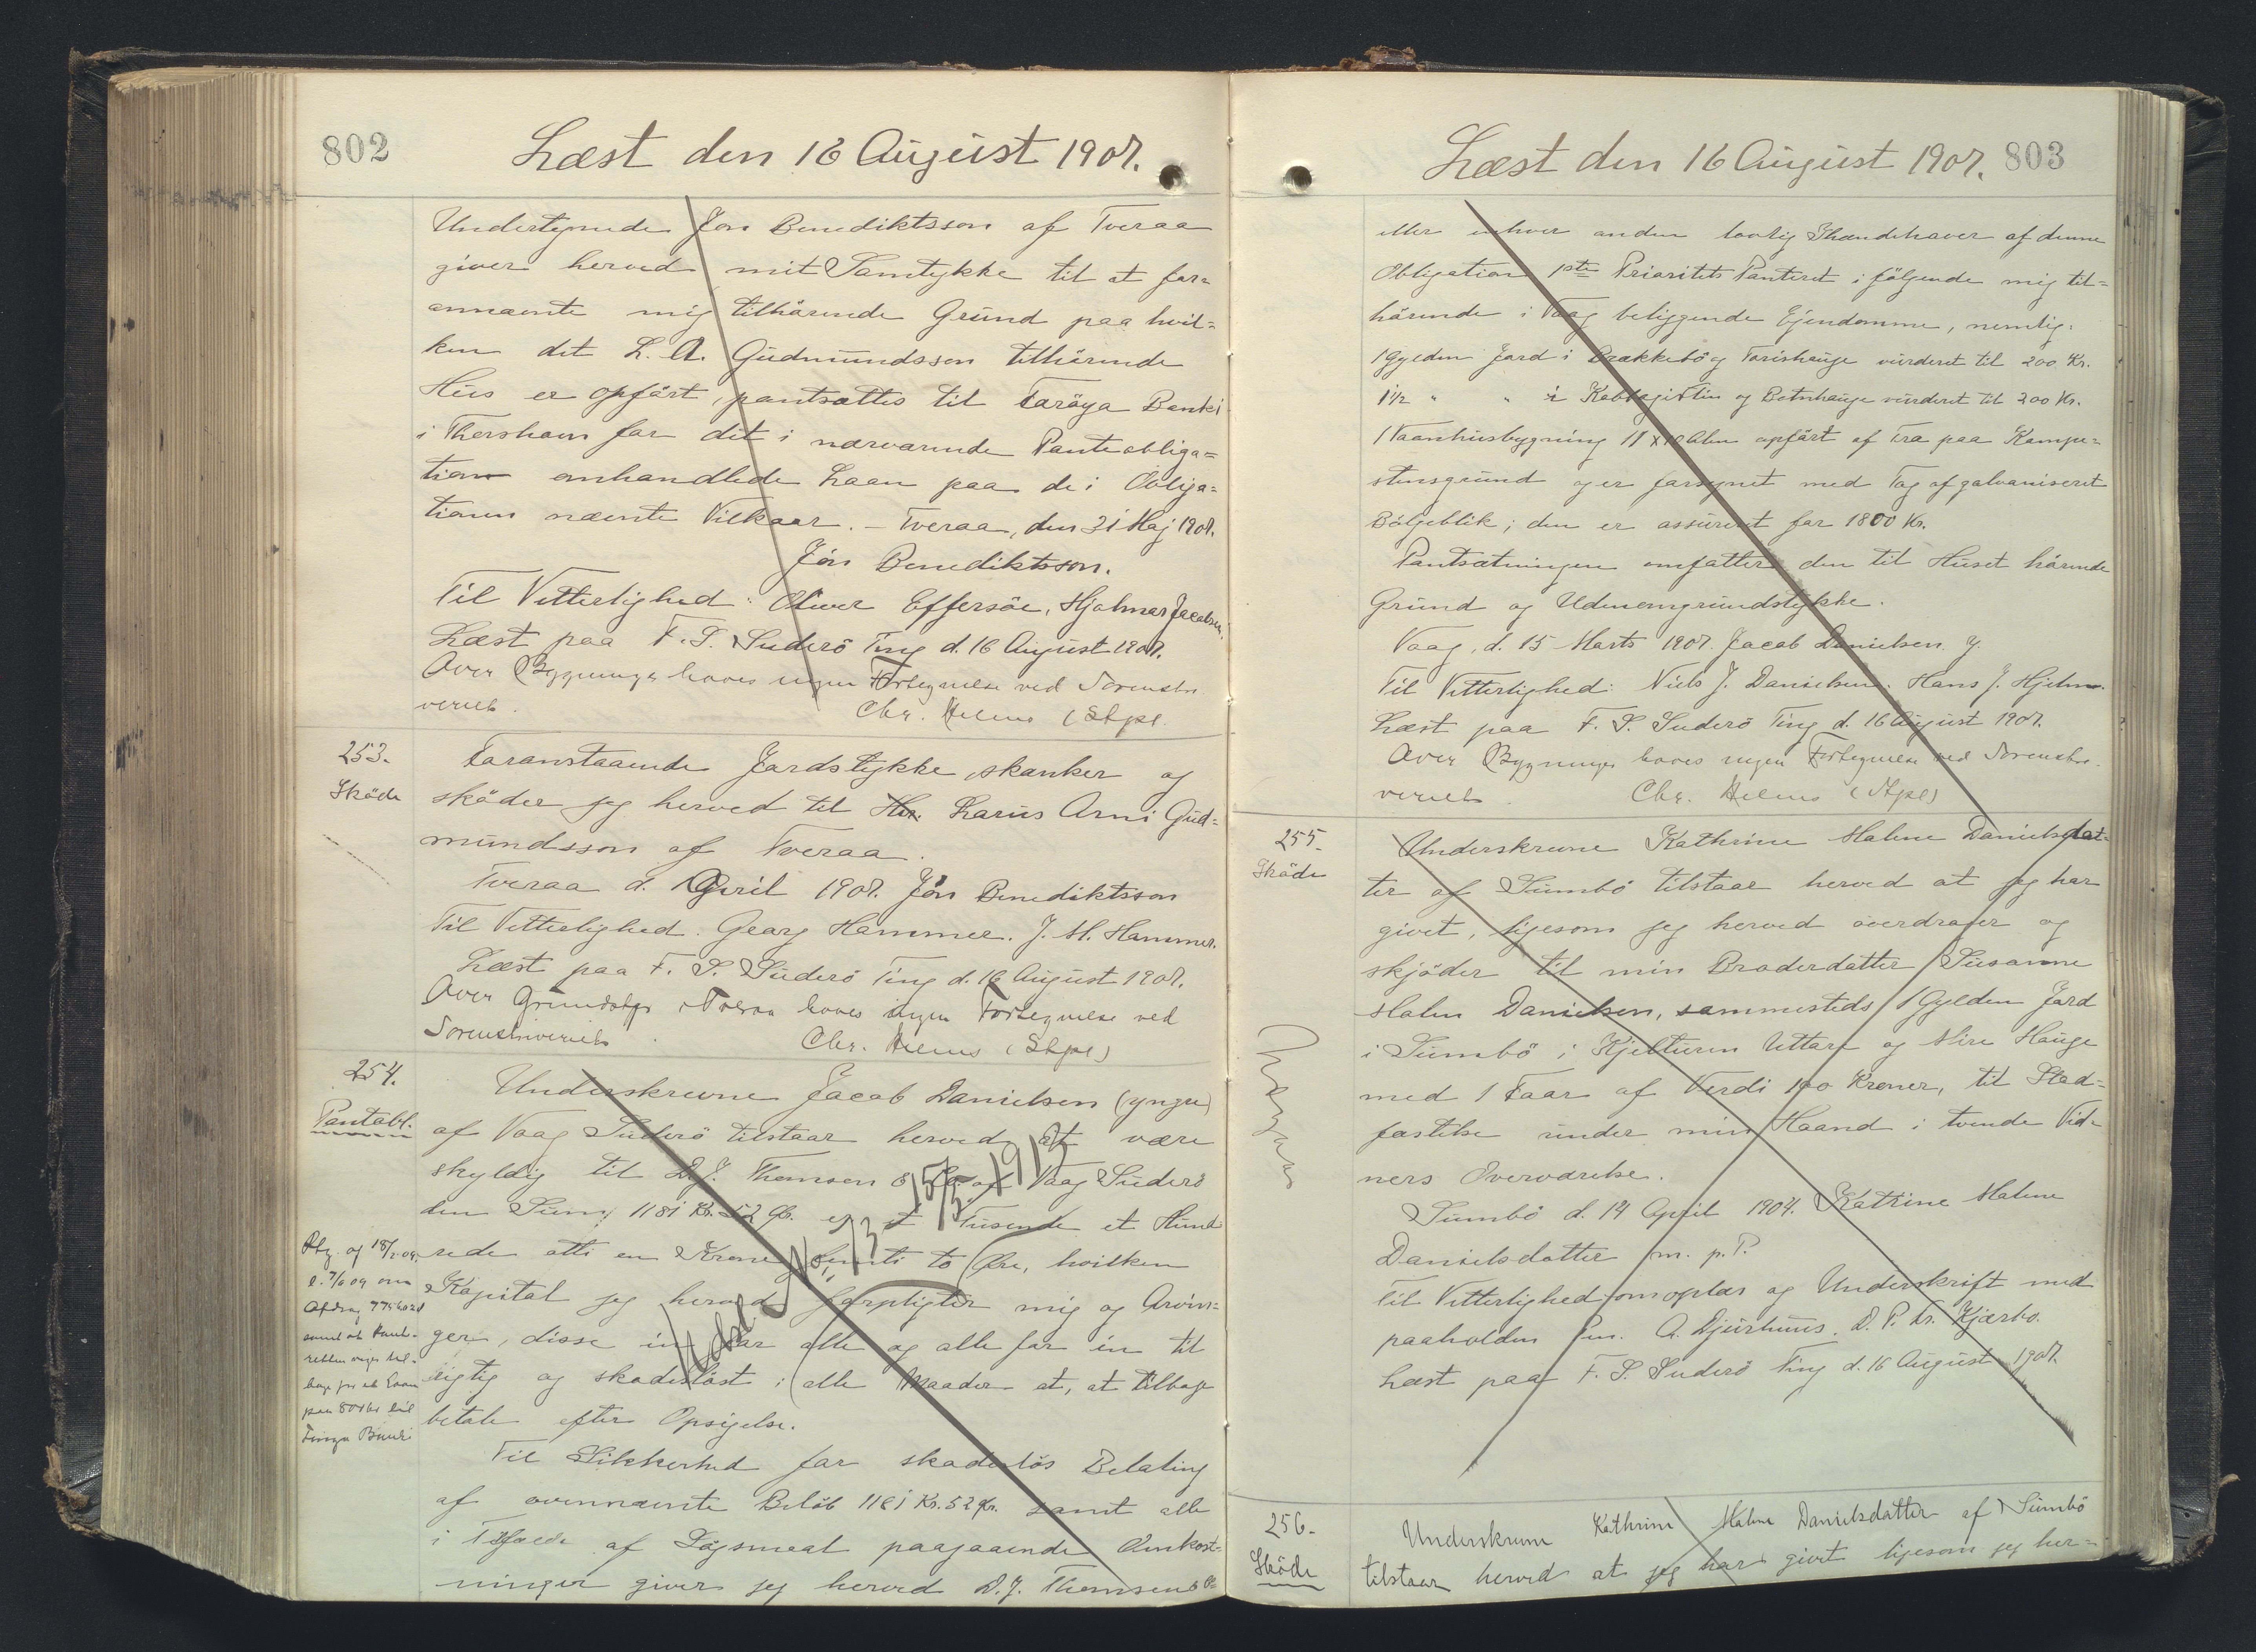 802
Læst den 16 August 1907.
Undertegnede Jon Benediktsson af Tveraa
giver herved mit Samtykke til at for=
annævnte mig tilhørende Grund paa hvil=
ken det L. A. Gudmundsson tilhørende
Hus er opført, pantsættes til Føroya Banki
i Thorshavn for det i nærværende Panteobliga=
tion omhandlede Laan paa de i Obliga=
tionen nævnte Vilkaar. – Tveraa, den 31 Maj 1907.
Jón Benediktsson.
Til Vitterlighed: Oliver Effersöe, Hjalmar Jacobsen.
Læst paa F. S. Suderö Ting d. 16 August 1907.
Over Bygninger haves ingen Fortegnelse ved Sorenskri
veriet.
Chr. Helms (Stpl.
253.
Skøde
Foranstaaende Jordstykke skänker og
skøder jeg herved til Hr. Larus Arni Gud=
mundsson af Tveraa.
Tveraa d. 1 April 1907. Jón Benediktsson
Til Vitterlighed: Georg Hammer. J. M. Hammer.
Læst paa F. S. Suderö Ting d. 16 August 1907.
Over Grundstkr i Tveraa haves ingen Fortegnelse ved
Sorenskriveriet.
Chr. Helms (Stpl)
254.
Pantobl.
Underskrevne Jacob Danielsen (yngre)
af Vaag Suderö tilstaar herved at være
skyldig til D. J. Thomsen & Co. af Vaag Suderö
den Sum 1181 Kr. 52 Ør. et Tusende et Hund
rede otti en Krone femti to Øre, hvilken
Kapital jeg herved forpligter mig og Arvin=
ger, disse in for alle og alle for in til
rigtig og skadesløst i alle Maader at, at tilbage
betale efter Opsigelse.
Til Sikkerhed for skadesløs Betaling
af ovennævnte Beløb 1181 Kr. 52 Ør. samt alle
i Tilfælde af Søgsmaal paagaaende Omkost=
ninger giver jeg herved D. J. Thomsen & Co
Ptg. af 18/2 09
l. 7/6 09 om
Afdrag
samt at Pant-
retten viger til-
bage for et Laan
paa 800 kr til
Föroya Banki
803
Læst den 16 August 1907.
eller enhver anden lovlig Ihændehaver af denne
Obligation 1ste Prioritets Panteret i følgende mig til=
hørende i Vaag beliggende Ejendomme, nemlig:
1 Gylden Jord i Brækkebø og Torishauge vurderet til 200 Kr.
1½ " " i og Botnhauge vurderet til 200 Kr.
1 Vaanhusbygning 11 x 10 Alen opført af Træ paa Kampe=
stensgrund og er forsynet med Tag af galvaniseret
Bølgeblik; den er assureret for 1800 Kr.
Pantsætningen omfatter den til Huset hørende
Grund og Udenomgrundstykke.
Vaag, d. 15 Marts 1907. Jacob Danielsen y.
Til Vitterlighed: Niels J. Danielsen. Hans J. Hjelm.
Læst paa F. S. Suderö Ting d. 16 August 1907.
Over Bygninger haves ingen Fortegnelse ved Sorenskri
veriet.
Chr. Helms (Stpl)
255.
Skøde
Underskrevne Kathrine Malene Danielsdat=
ter af Sumbø tilstaar herved at jeg har
givet, ligesom jeg herved overdrager og
skjøder til min Broderdatter Susanne
Malen Danielsen, sammesteds 1 Gylden Jord
i Sumbø i Kjelturin Uttara og Mire Hauge
med 1 Faar af Verdi 100 Kroner, til Stad=
fæstelse under min Haand i tvende Vid=
ners Overværelse.
Sumbø d. 14 April 1904. Katrine Malene
Danielsdatter m. p. P.
Til Vitterlighed om oplæs og Underskrift med
paaholden Pen. A. Djurhuus. D. P. Kr. Kjærbo.
Læst paa F. S. Suderö Ting d. 16 August 1907.
256.
Skøde
Underskrevne Kathrine Malene Danielsdatter af Sumbø
tilstaar herved at jeg har givet ligesom jeg her=